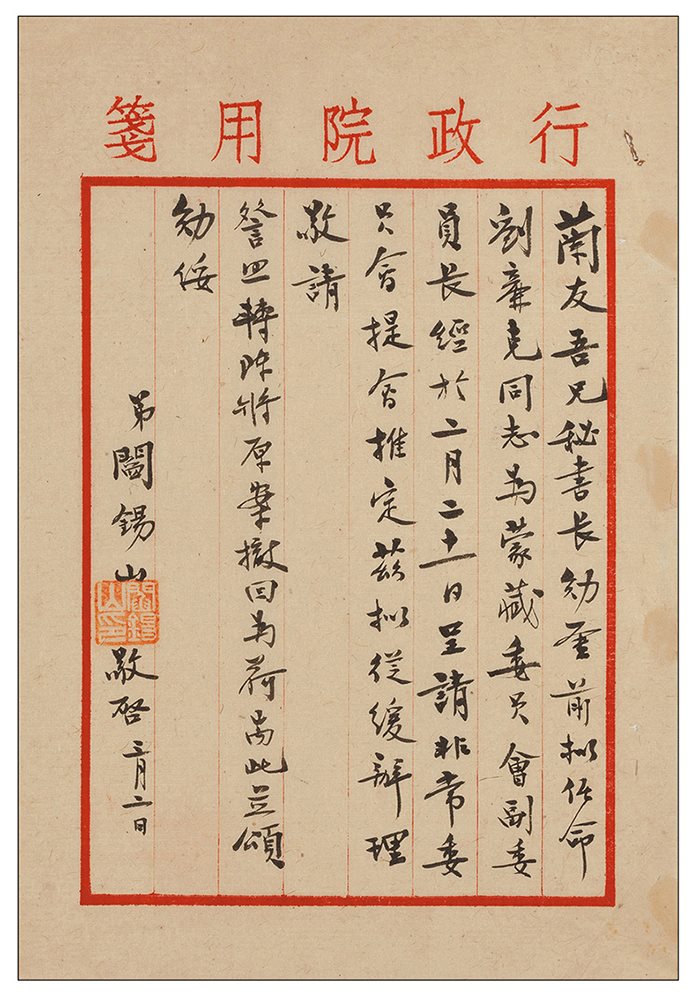 行政院用箋
蘭友吾兄秘書長勛鑒前擬任命
劉廉克同志為蒙藏委員會副委
員長經於二月二十一日呈請非常委
員會提會推定茲擬從緩辦理
敬請
詧照轉陳將原案撤回為荷耑此並頌
勛綏
弟閻錫山敬啓 三月二日
閻錫山印